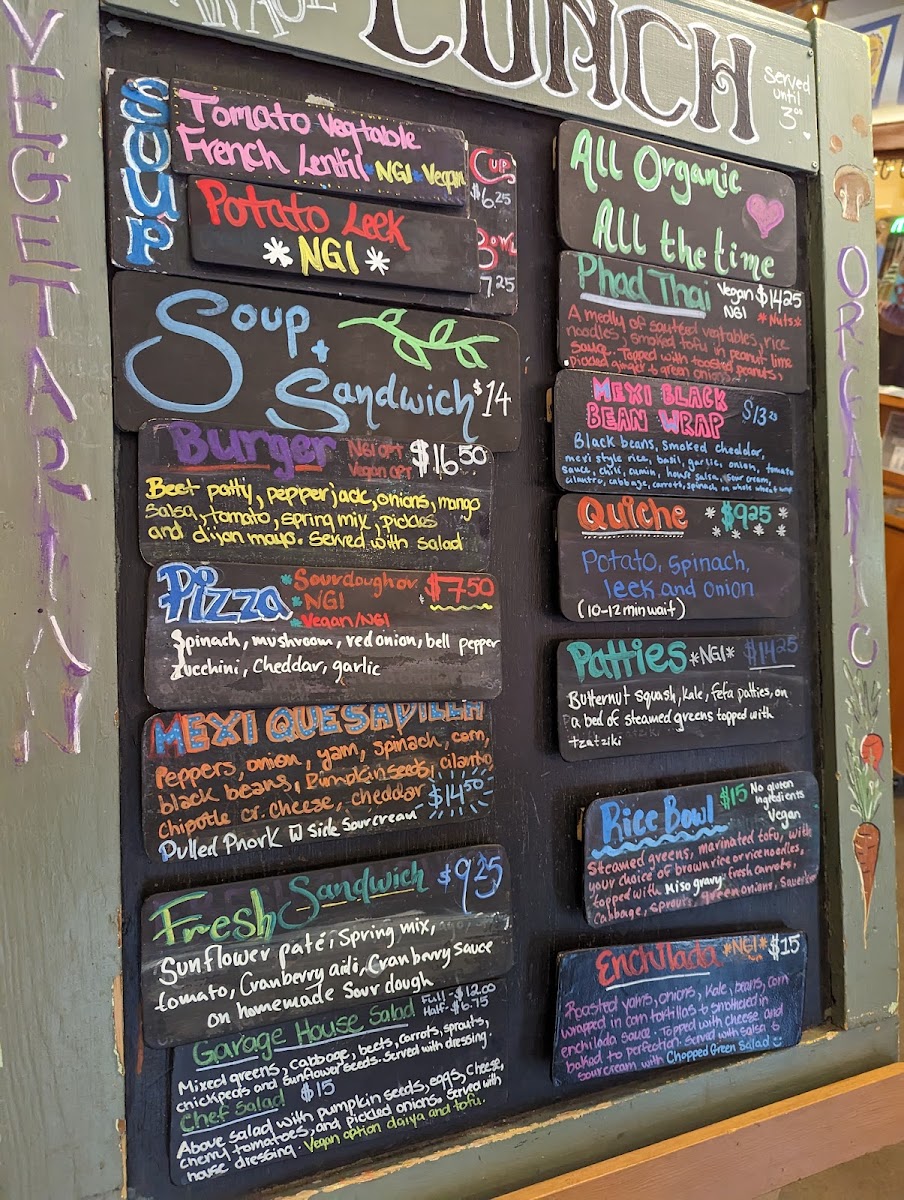 LUNCH
served
until
3⁰⁰
VEGETARIAN
SOUP
Tomato Vegtable
French Lentil *NGI* Vegan
Potato Leek
*NGI*
CUP
$6.25
BOWL
7.25
Soup +
Sandwich $14
Burger NGI OPT $16.50
Vegan OPT
Beet patty, pepperjack, onions, mango
salsa, tomato, spring mix, pickles
and dijon mayo. Served with salad
Pizza *Sourdough or $7.50
*NGI
*Vegan/NGI
Spinach, mushroom, red onion, bell pepper
Zucchini, cheddar, garlic
MEXI QUESADILLA
Peppers, onion, yam, spinach, corn,
black beans, Pumpkin seeds, cilantro
chipotle cr. cheese, cheddar $14.50
Pulled Phork W side Sour cream
Fresh Sandwich $9.25
Sunflower paté, Spring mix,
tomato, Cranberry aïoli, Cranberry sauce
on homemade Sourdough
Garage House Salad Full - $12.00
Half - $6.75
Mixed greens, cabbage, beets, carrots, sprouts,
chickpeas and sunflower seeds. Served with dressing.
Chef Salad $15
Above salad with pumpkin seeds, eggs, cheese,
cherry tomatoes, and pickled onions. Served with
house dressing. Vegan option daiya and tofu.
All Organic
All the time
Phad Thai Vegan $14.25
NGI *Nuts*
A medly of sautéed vegtables, rice
noodles, smoked tofu in peanut lime
sauce. Topped with toasted peanuts,
pickled ginger & green onions
MEXI BLACK
BEAN WRAP $13.25
Black beans, smoked cheddar,
mexi style rice, basil, garlic, onion, tomato
sauce, chili, cumin, house salsa, sour cream,
cilantro, cabbage, carrots, spinach, on whole wheat wrap
Quiche $9.25
Potato, spinach,
leek and onion
(10-12 min wait)
Patties *NGI* $14.25
Butternut squash, kale, feta patties, on
a bed of steamed greens topped with
tzatziki
Rice Bowl $15 No gluten
ingredients
Vegan
Steamed greens, marinated tofu, with
your choice of brown rice or rice noodles,
topped with Miso gravy, fresh carrots,
Cabbage, sprouts, green onions,
Enchilada *NGI* $15
Roasted yams, onions, kale, beans, corn
wrapped in corn tortillas & smothered in
enchilada sauce. Topped with cheese and
baked to perfection. Served with salsa &
sour cream with Chopped Green Salad
ORGANIC